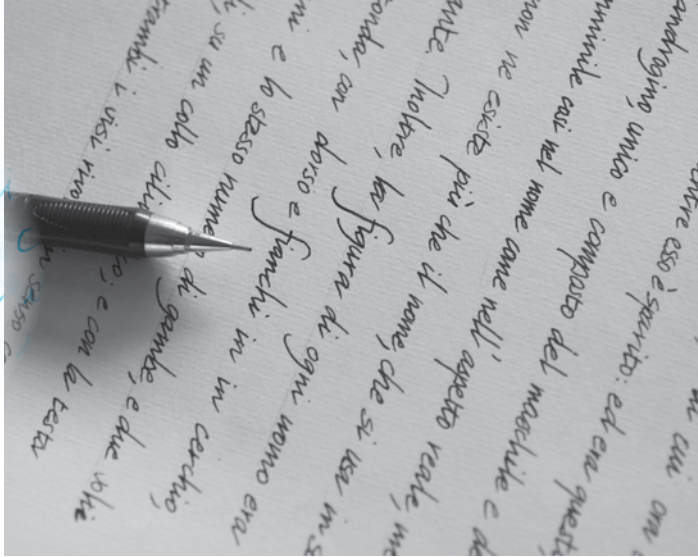 di cui ora
esso è sparito: ed era questo
androgino unico e composto del maschile e de
mminile così nel nome come nell'aspetto reale, me
non ne esiste più che il nome, che si usa in s
ante. Inoltre, la figura di ogni uomo era
onda, con dorso e fianchi in in cerchio,
ni e lo stesso nume o di gambe, e due volte
i, su un collo cili o; e con la testa
trambi i visi rivo in senso